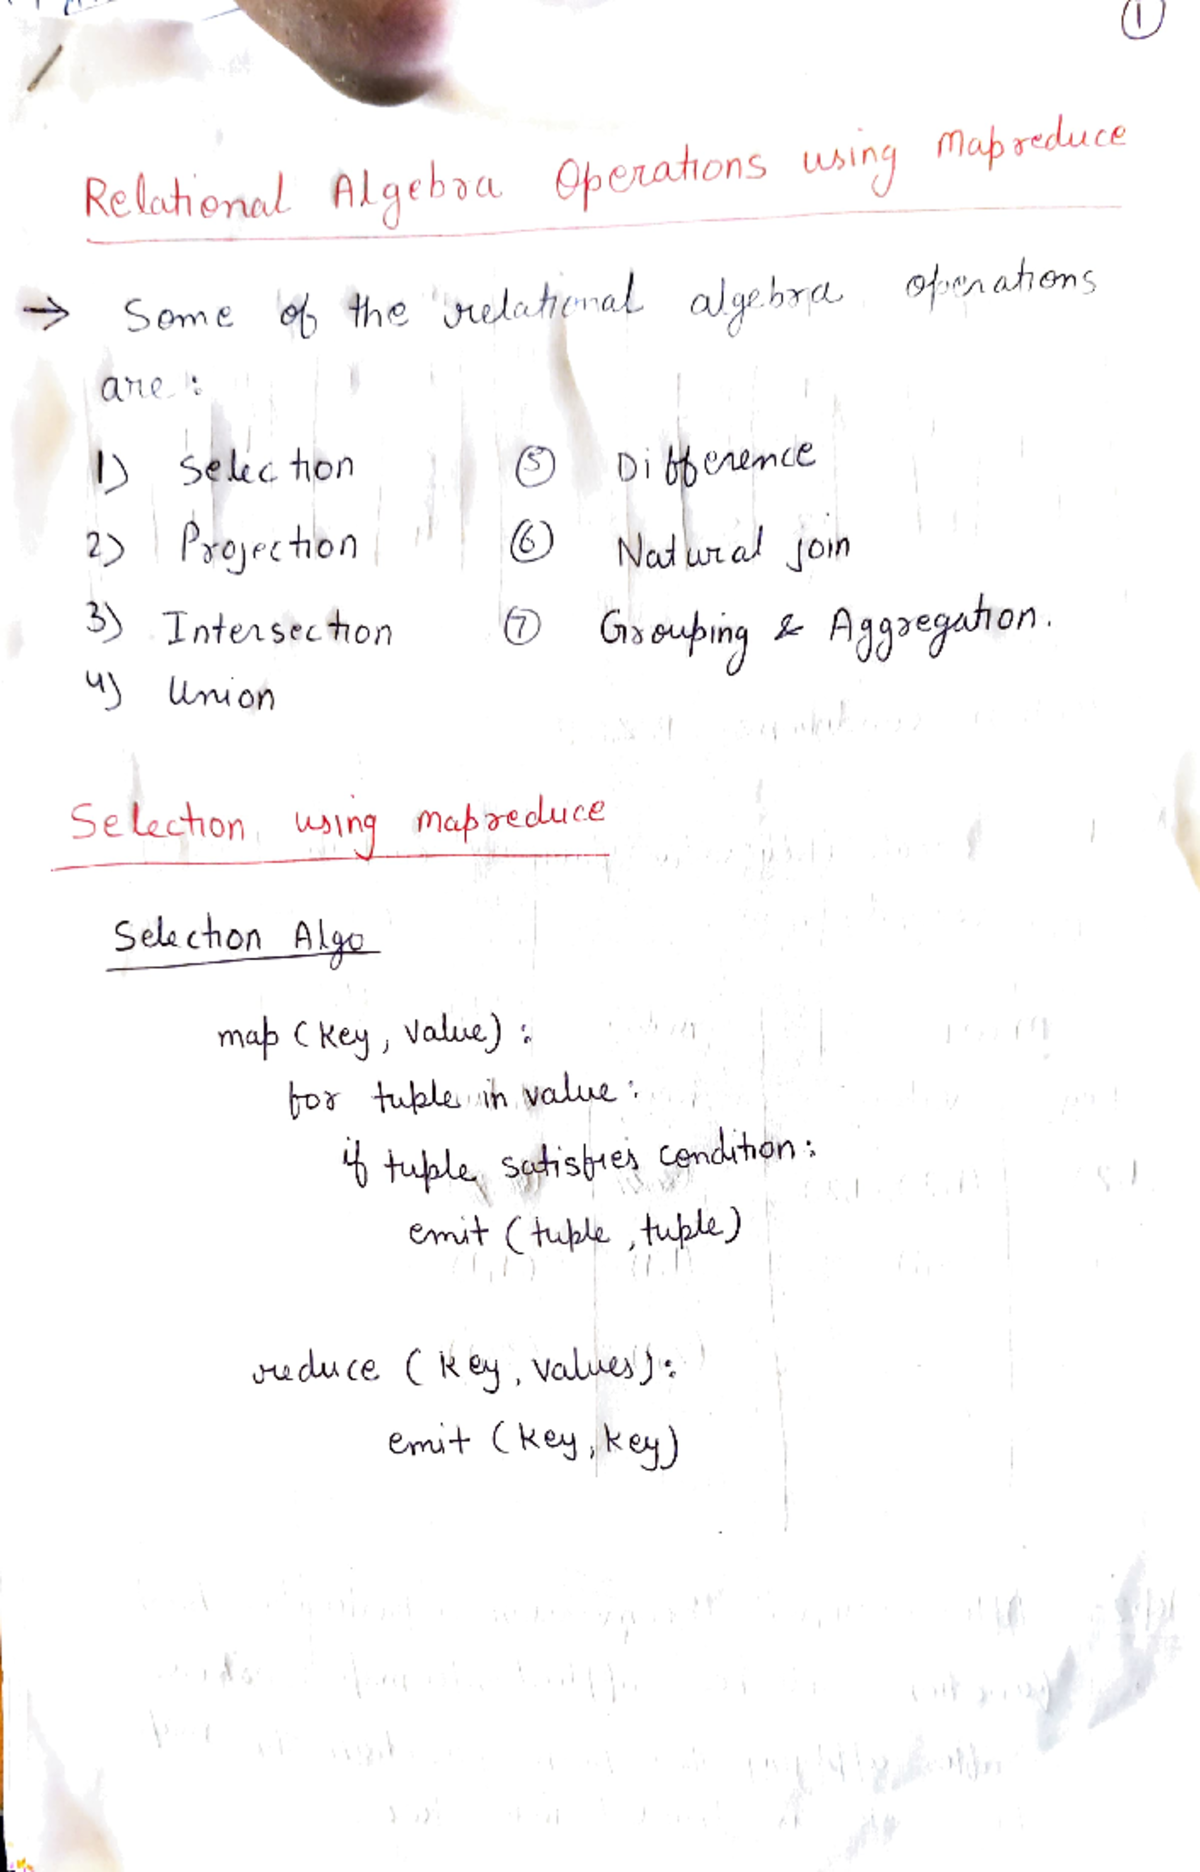 ①
Relational Algebra Operations using Mapreduce
→ Some of the relational algebra operations
are :
1) Selection ⑤ Difference
2) Projection ⑥ Natural join
3) Intersection ⑦ Grouping & Aggregation.
4) Union
Selection using mapreduce
Selection Algo
map (key, value) :
for tuple in value :
if tuple satisfies condition :
emit (tuple, tuple)
reduce (key, values) :
emit (key, key)